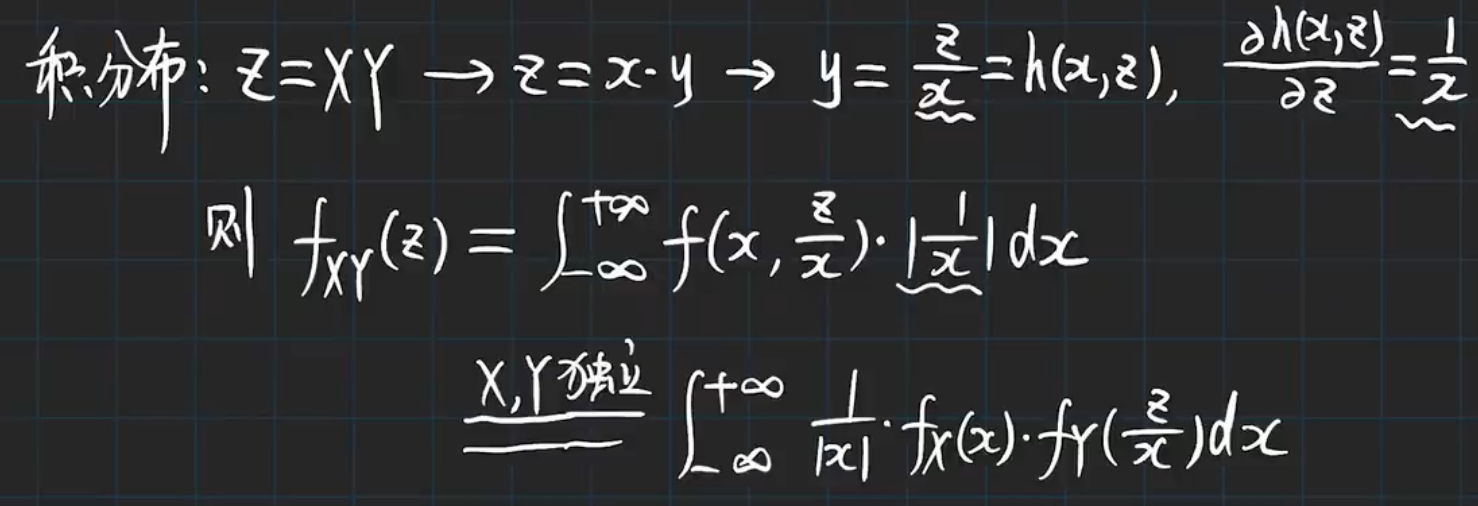 积分布: Z=XY → z=x·y → y=z/x=h(x,z), ∂h(x,z)/∂z=1/x
则 f_XY(z)=∫_{-∞}^{+∞} f(x,z/x)·|1/x|dx
X,Y独立 ∫_{-∞}^{+∞} 1/|x|·f_X(x)·f_Y(z/x)dx